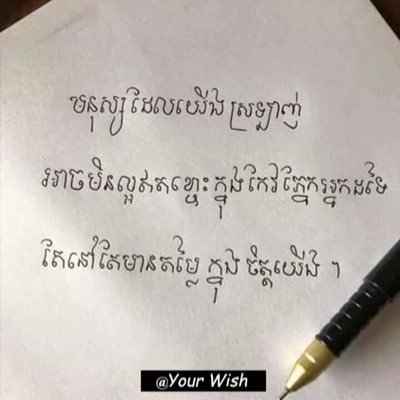 មនុស្សដែលយើងស្រឡាញ់
អាចមិនល្អឥតខ្ចោះ ក្នុងកែវភ្នែកអ្នកដទៃ
តែនៅតែមានតម្លៃ ក្នុង ចិត្តយើង ។
@Your Wish